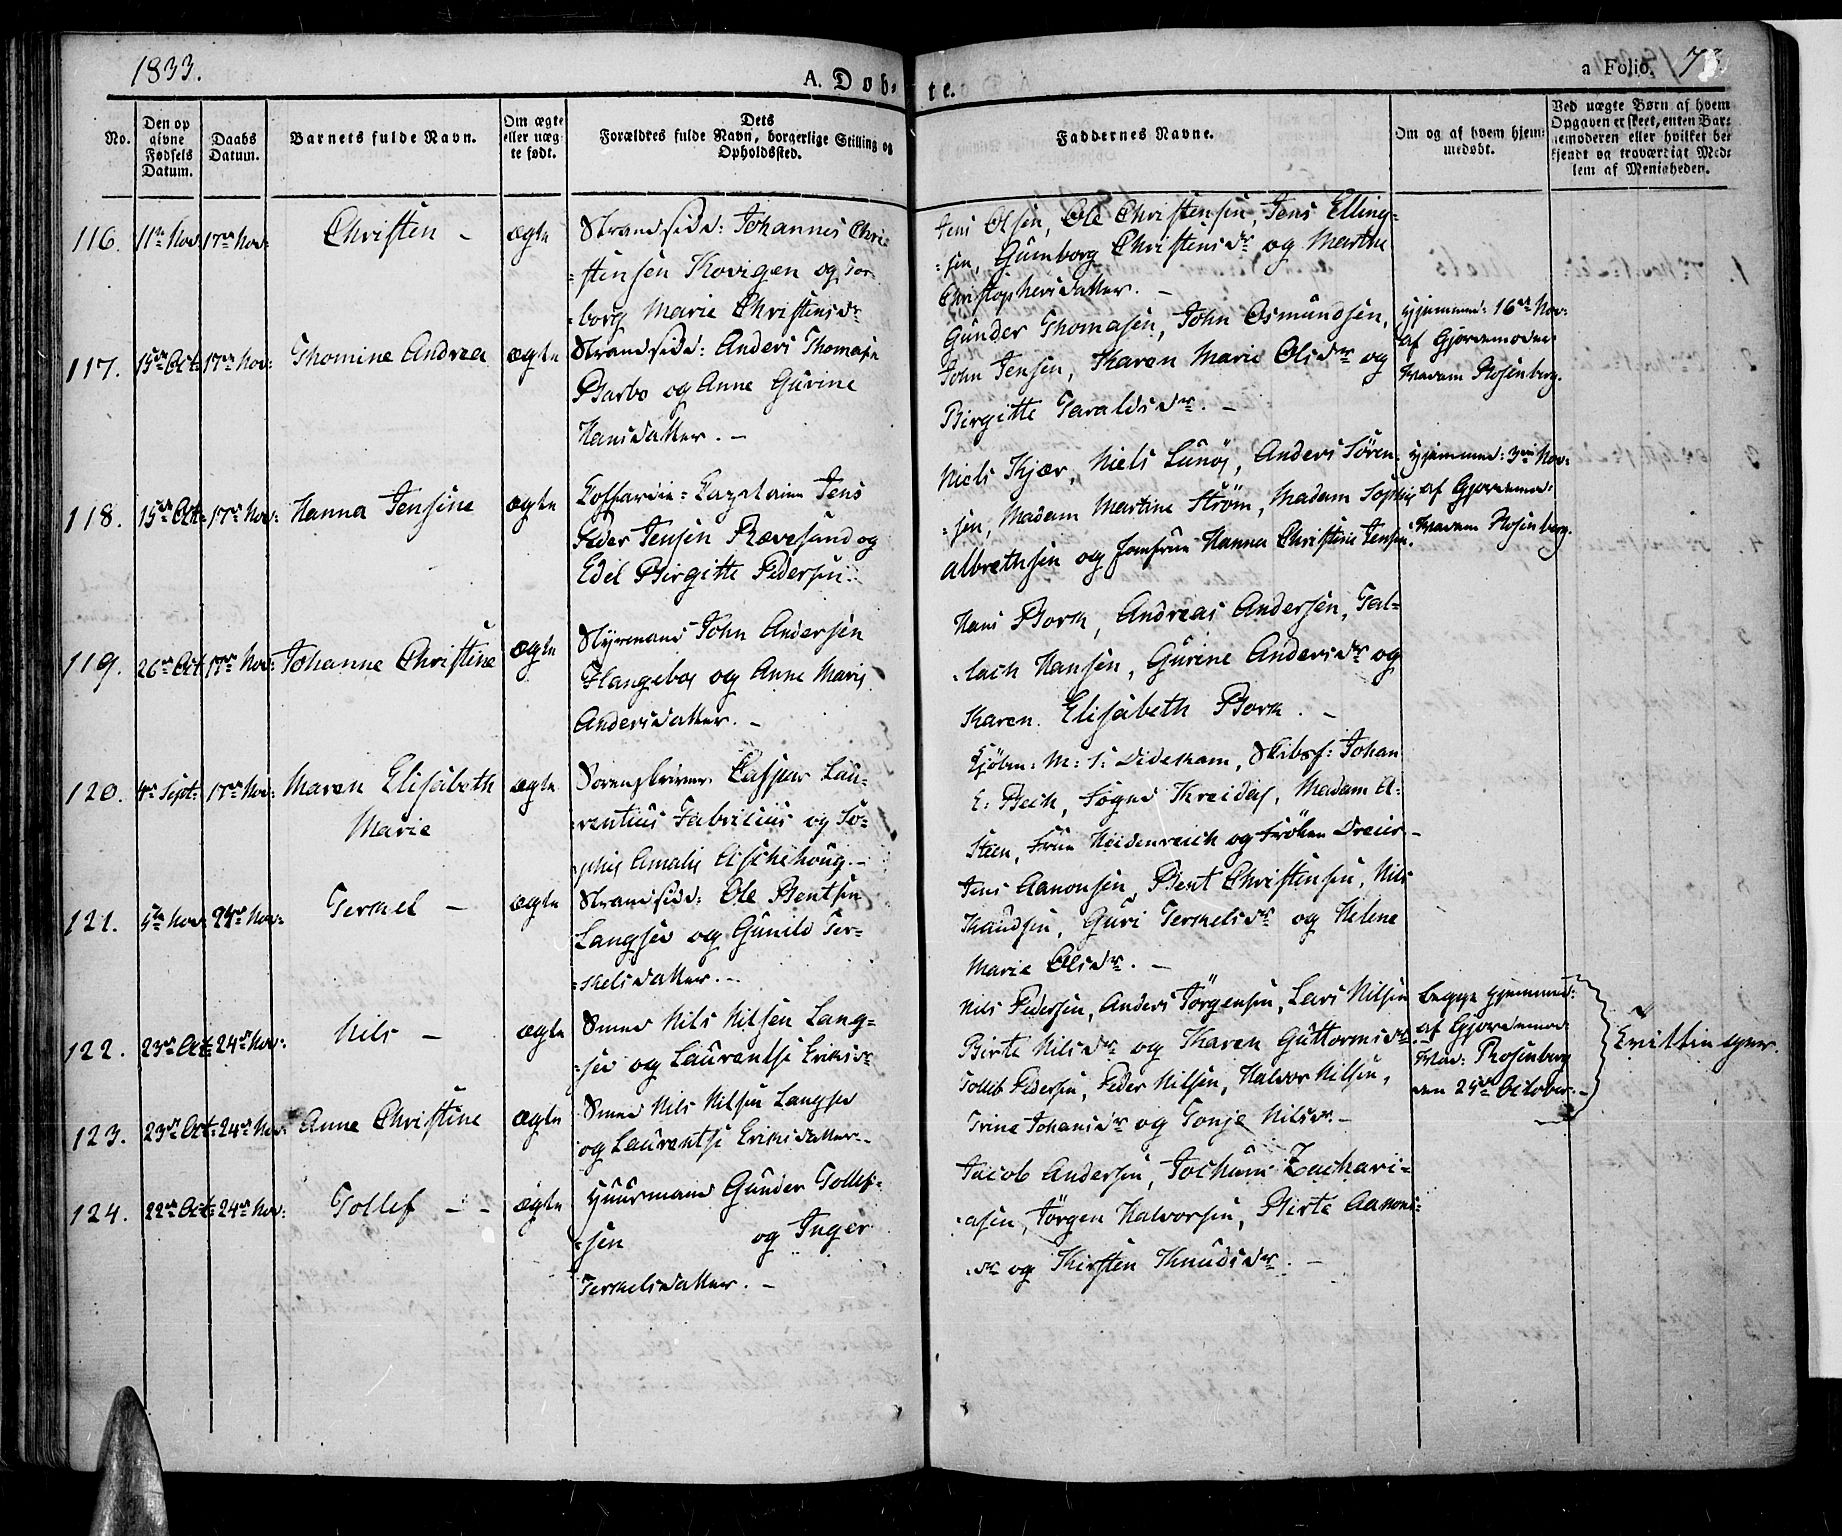 1833.
A. Døb-
te.
a Folio. 73
No.
Den op
givne
Fødsels
Datum.
Daabs
Datum.
Barnets fulde Navn.
Om ægte
eller uæg-
te født.
Dets
Forældres fulde Navn, borgerlige Stilling og
Opholdssted.
Faddernes Navne.
Om og af hvem hjem-
medøbt.
Ved uægte Børn af hvem
Opgaven er skeet, enten Bar-
nemoderen eller hvilket be-
kjendt og troværdigt Med-
lem af Menigheden.
116. 11te Nov: 17de Nov: Christen - ægte
Strandsidd: Johannes Chri-
stensen Kovigen og Tor-
borg Marie Christensdr
Jens Olsen, Ole Christensen, Jens Elling-
sen, Gunborg Christensdr og Marthe
Christophersdatter. -
117. 15de Oct: 17de Nov: Thomine Andrea ægte
Strandsidd: Anders Thomasen
Barbo og Anne Gurine
Hansdatter. -
Gunder Thomasen, John Osmundsen,
John Jensen, Karen Marie Olsdr og
Birgitte Taraldsdr. -
Hjemmed: 16de Nov:
af Gjordemoder
Madam Rosenberg.
118. 15de Oct: 17de Nov: Hanna Jensine ægte
Coffardie-Capitaine Jens
Peder Jensen Rævesand og
Edel Birgitte Pedersen.
Niels Kjær, Niels Lunøe, Anders Sören-
sen, Madam Martine Strøm, Madam Sophie
Albrethsen og Jomfrue Hanna Christine Jensen.
Hjemmed: 3die Nov:
af Gjordemod:
Madam Rosenberg.
119. 26de Oct: 17de Nov: Johanne Christine ægte
Styrmand John Andersen
Flangeboe og Anne Marie
Andersdatter. -
Hans Bork, Andreas Andersen, Tal-
lach Hansen, Gurine Andersdr og
Karen Elisabeth Bork. -
120. 4de Sept: 17de Nov: Maren Elisabeth
Marie
ægte
Sorenskriver Caspar Lau-
rentius Fabritius og So-
phie Amalie Aschehoug. -
Kjöbm: M: S: Dideskam, Skibsf: Johan
C: Bech, Fogned Kreidal, Madam A:
Steen, Frue Heidenreich og Frøken Dreier -
121. 5te Nov: 24de Nov: Terkel - ægte
Strandsidd: Ole Bentsen
Langsev og Gunild Ter-
kelsdatter. -
Jens Aanonsen, Bent Christensen, Nils
Knudsen, Guri Terkelsdr og Helene
Marie Olsdr. -
122. 23de Oct: 24de Nov: Nils - ægte
Smed Nils Nilsen Lang-
sev og Laurentse Eriksdr
Nils Pedersen, Anders Jörgensen, Lars Nilsen
Birte Nilsdr og Karen Guttormsdr.
begge hjemmed:
af Gjordemod:
Mad: Rosenberg
den 25de October. -
Ere Tvillinger.
123. 23de Oct: 24de Nov: Anne Christine ægte
Smed Nils Nilsen Langsev
og Laurentse Eriksdatter. -
Tollef Pedersen, Peder Nilsen, Halvor Nilsen,
Trine Johansdr og Tonje Nilsdr. -
124. 22de Oct: 24de Nov: Tollef - - ægte
Huusmand Gunder Tollef-
sen og Inger
Terkelsdatter. -
Jacob Andersen, Jochum Zachari-
asen, Jörgen Halvorsen, Birte Aanons-
dr og Kirsten Knudsdr. -